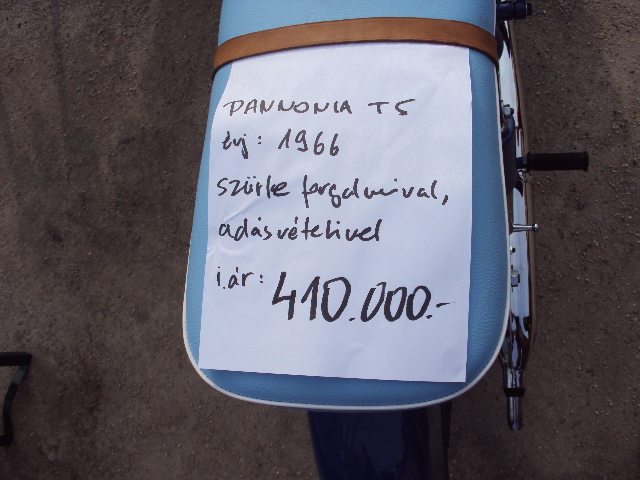 PANNONIA T5
évj: 1966
szürke forgalmival,
adásvételivel
i.ár: 410.000.-